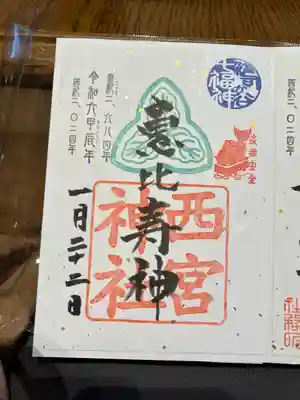 七福神
恵比寿神
西宮
神社
皇紀二、六八四年
令和六甲辰年
西紀二、〇二四年
一月二十二日